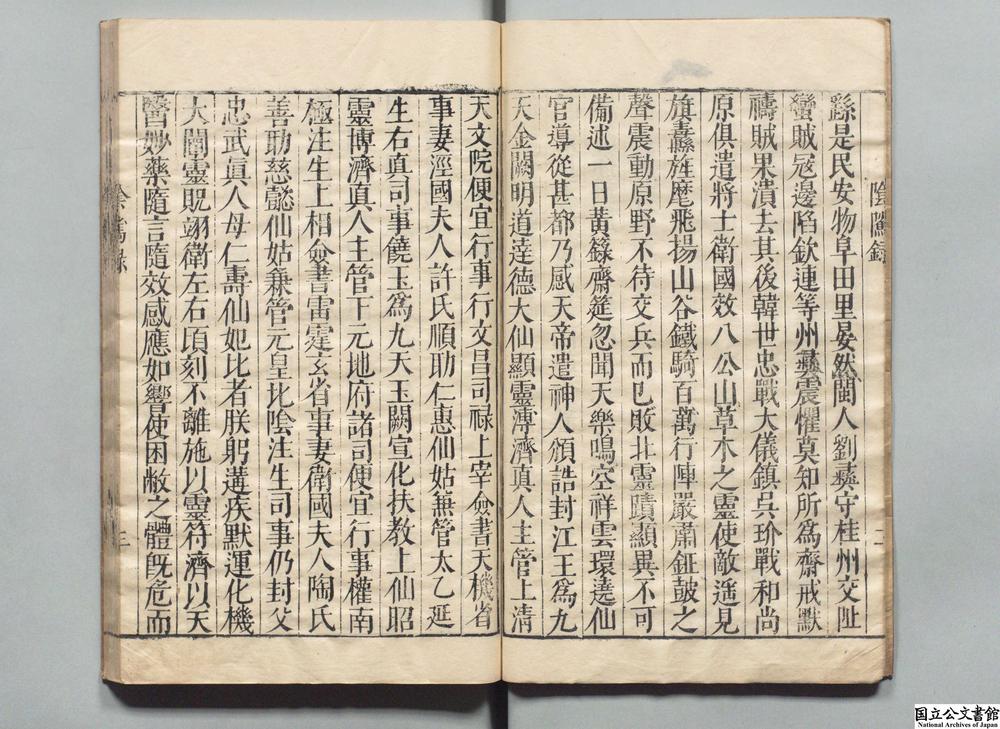 陰隲錄
二
繇是民安物阜田里晏然閩人劉彝守桂州交阯
蠻賊寇邊陷欽連等州彝震懼莫知所爲齋戒默
禱賊果潰去其後韓世忠戰大儀鎮吳玠戰和尚
原俱遣將士衛國效八公山草木之靈使敵遙見
旗纛旌麾飛揚山谷鐵騎百萬行陣嚴肅鉦鼓之
聲震動原野不待交兵而已敗北靈蹟顯異不可
備述一日黃籙齋筵忽聞天樂鳴空祥雲環遶仙
官導從甚都乃感天帝遣神人頒誥封江王爲九
天金闕明道達德大仙顯靈溥濟真人主管上清
天文院便宜行事行文昌司祿上宰僉書天機省
事妻涇國夫人許氏順助仁惠仙姑兼管太乙延
生右真司事饒玉爲九天玉闕宣化扶教上仙昭
靈博濟真人主管下元地府諸司便宜行事權南
極注生上相僉書雷霆玄省事妻衛國夫人陶氏
善助慈懿仙姑兼管元皇比陰注生司事仍封父
忠武眞人母仁壽仙妃比者朕躬遘疾默運化機
大闡靈貺翊衛左右頃刻不離施以靈符濟以天
醫妙藥隨言隨效感應如響使困敝之體旣危而
陰隲錄
三
国立公文書館
National Archives of Japan